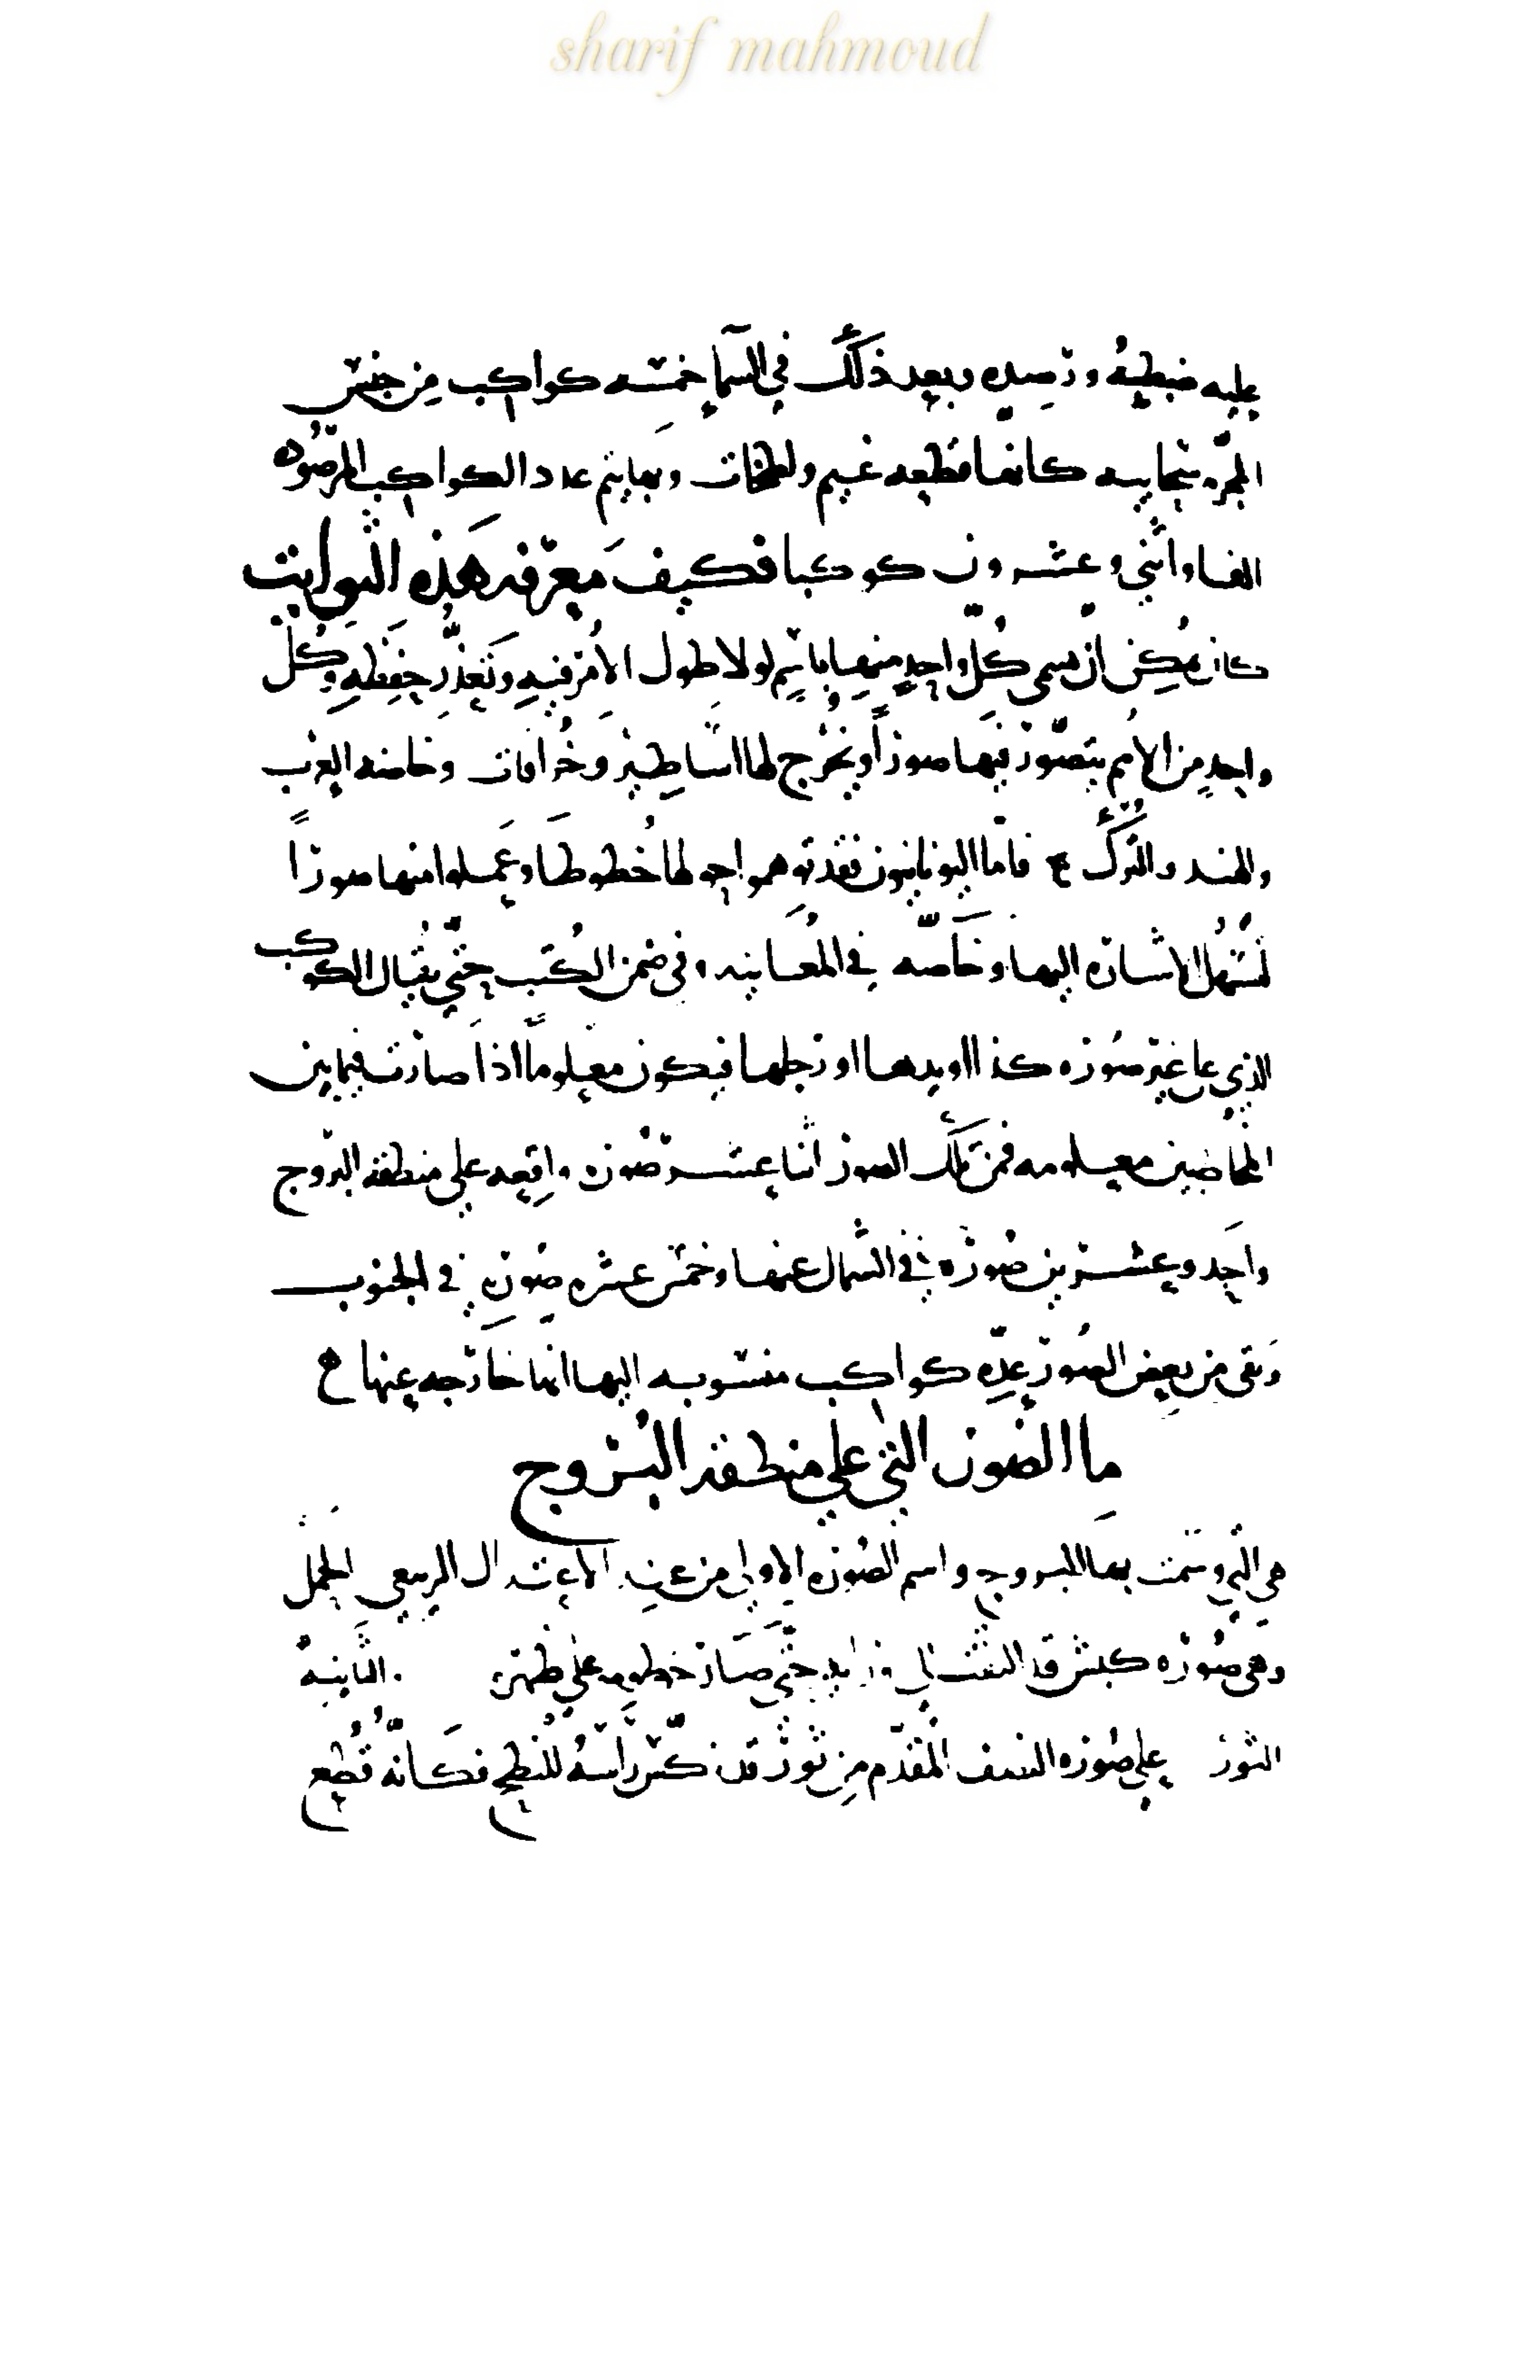 sharif mahmoud
عليه ضبطه ورصده وبعد ذلك في السماء خمسه كواكب من جنس
المجره سحابيه كانها قطعه غيم ولطخات وبها يتم عدد الكواكب المرصوده
الفا واثني وعشرون كوكبا فكيف معرفه هذه الثوابت
كان يمكن ان يسمى كل واحد منها باسم لولا طول الامر فيه وتعذر حفظه وكل
واحد من الامم يتصور فيها صورا ويخرج لها اساطير وخرافات وخاصه العرب
والهند والترك فاما اليونانيون فقد توهموا حولها خطوطا وعملوا منها صورا
لتسهل الاشاره اليها وخاصه في المعاينه وفي ضمن الكتب حتى يقال الكوكب
الذي على صوره كذا او يدها او رجلها فيكون معلوما اذا صارت فيما بين
المخاطبين معلومه فمن تلك الصور اثنا عشر صوره واقعه على منطقه البروج
واحد وعشرين صوره في الشمال عنها وخمس عشره صوره في الجنوب
وبقى من بعض الصور عده كواكب منسوبه اليها انها خارجه عنها
ما الصور التي على منطقه البروج
هي التي وسمت بها البروج واسم الصوره الاولى من عند الاعتدال الربيعي الحمل
وهي صوره كبش قد التفت الى ورايه حتى صار خطمه على ظهره الثانيه
الثور على صوره النصف المقدم من ثور قد نكس راسه للنطح فكانه قطع